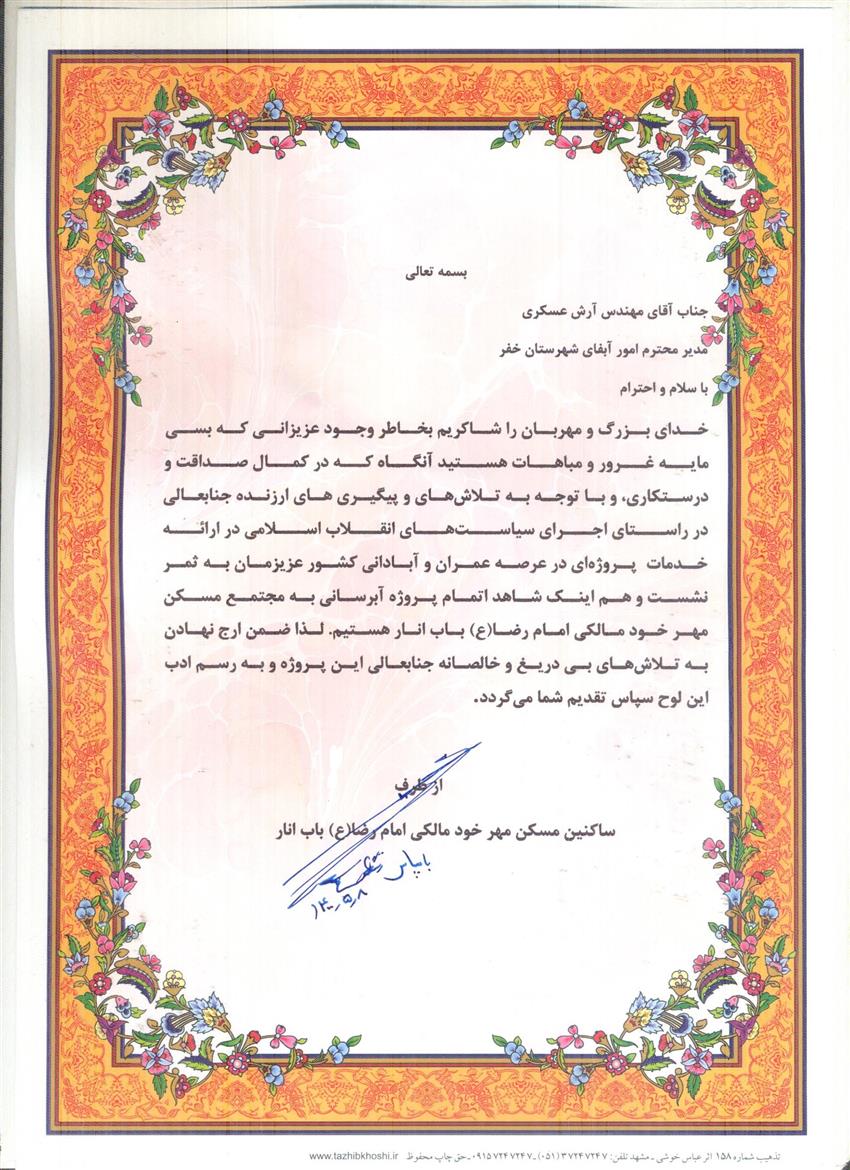 بسمه تعالی
جناب آقای مهندس آرش عسکری
مدیر محترم امور آبفای شهرستان خفر
با سلام و احترام
خدای بزرگ و مهربان را شاکریم بخاطر وجود عزیزانی که بسی
مایه غرور و مباهات هستید آنگاه که در کمال صداقت و
درستکاری، و با توجه به تلاش‌های و پیگیری های ارزنده جنابعالی
در راستای اجرای سیاست‌های انقلاب اسلامی در ارائه
خدمات پروژه‌ای در عرصه عمران و آبادانی کشور عزیزمان به ثمر
نشست و هم اینک شاهد اتمام پروژه آبرسانی به مجتمع مسکن
مهر خود مالکی امام رضا(ع) باب انار هستیم. لذا ضمن ارج نهادن
به تلاش‌های بی دریغ و خالصانه جنابعالی این پروژه و به رسم ادب
این لوح سپاس تقدیم شما می‌گردد.
از طرف
ساکنین مسکن مهر خود مالکی امام رضا(ع) باب انار
با سپاس
۱۴۰۰٫۵٫۸
تذهیب شماره ۱۵۸ اثر عباس خوشی ـ مشهد تلفن: ۳۷۲۴۷۲۴۷ (۰۵۱) ـ ۰۹۱۵۷۲۴۷۲۴۷ ـ حق چاپ محفوظ www.tazhibkhoshi.ir